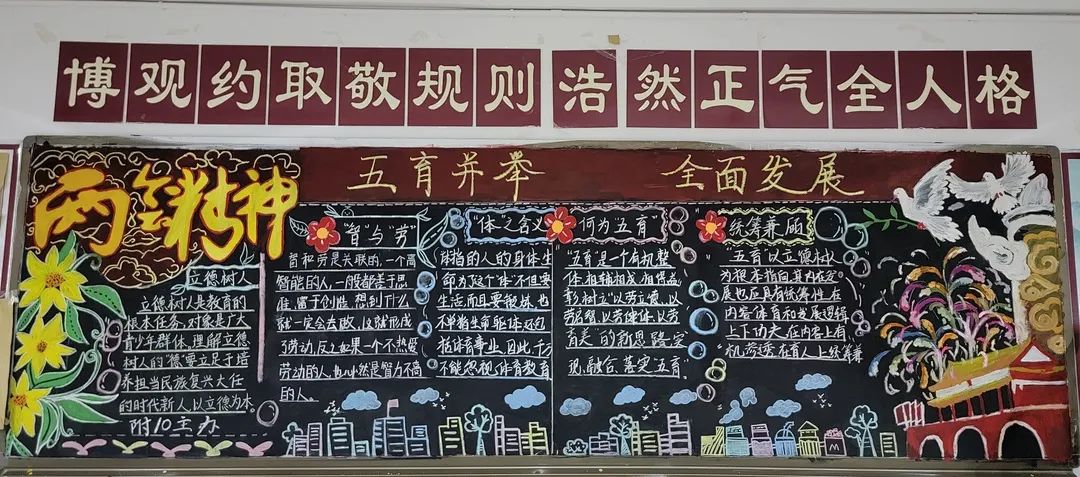 博观约取敬规则 浩然正气全人格
五育并举 全面发展
两会精神
立德树人
立德树人是教育的
根本任务,对象是广大
青少年群体,理解立德
树人的"德"要立足于培
养担当民族复兴大任
的时代新人以立德为本。
附10主办
"智"与"劳"
智和劳是关联的,一个高
智能的人,一般都善于思
维,富于创造,想到什么
就一定会去做,这就形成
了劳动,反之如果一个不热爱
劳动的人,也必然是智力不高
的人。
"体"之含义
体指的人的身体生
命,为这个"体"不但要
生活而且要锻炼,也
不单指生命躯体还包
括体育事业,因此,千万
不能忽视体育教育
何为"五育"
"五育"是一个有机整
体,相辅相成,相得益
彰,树立"以劳立德,以
劳启智,以劳健体,以劳
育美"的新思路,实
现融合,落实五育。
统筹兼顾
五育以立德树人
为根本指向,其内在发
展也应具有统筹性,在
内容体育和发展逻辑
上下功夫,在内容上有
机渗透,在育人上统筹兼